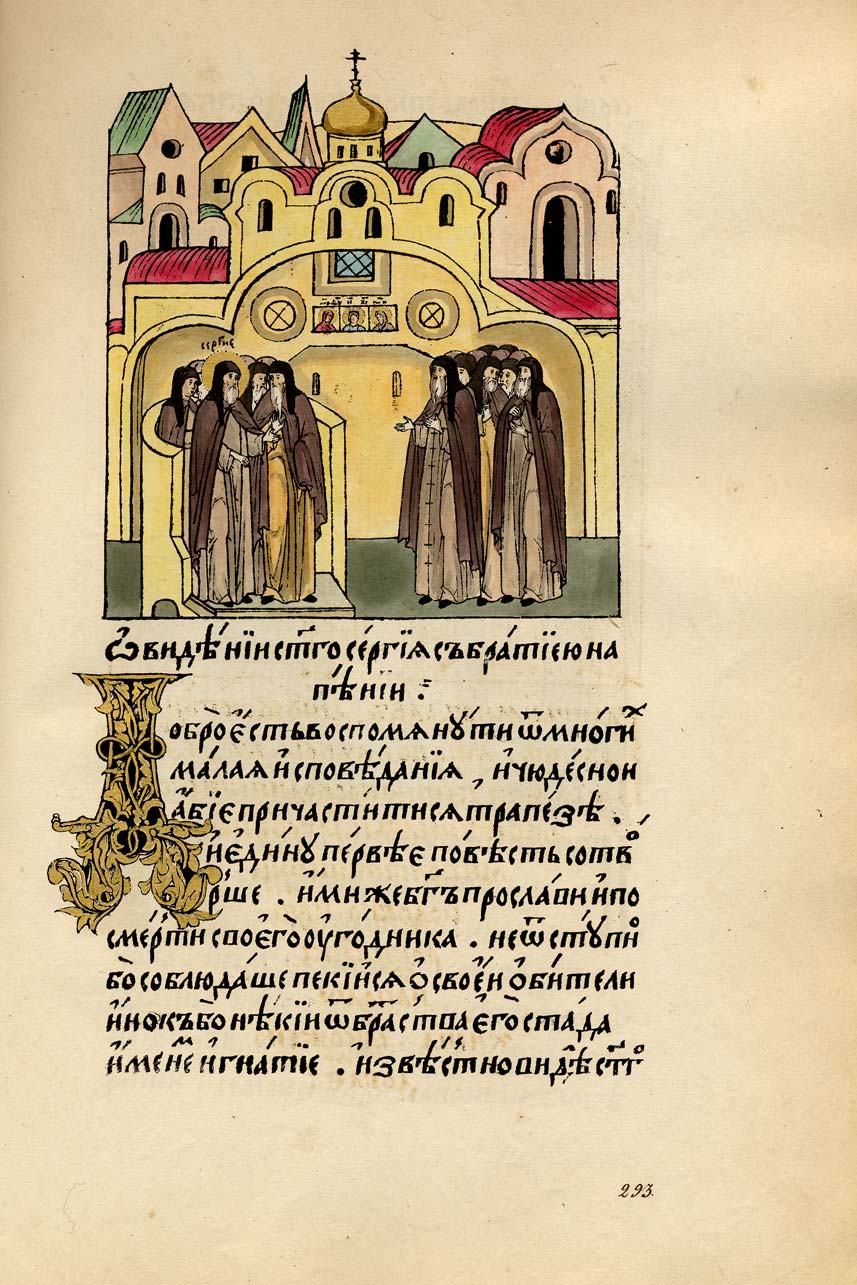 сергїе
Ѡ видѣнїи ст҃го сергїѧ съ братїею на
пѣнїи
Добро̀ є҆сть воспомѧнꙋти ѿ мно́гиⷯ
ма́лаѧ и҆сповѣданїѧ, и҆ чюде́сной
а҆́бїе причасти́тисѧ трапе́зѣ.
и҆ є҆ди́нꙋ пе́рвѣе по́вѣсть сотвоⷬ҇
рше. и҆́миже бг҃ъ прослави и҆ по
сме́рти своєго̀ ᲂу҆го́дника. не ѿстꙋпн
бо соблюда́ше пекі́йсѧ ѡ҆ свое́й ѻ҆би́тели
и҆́нокъ бо нѣкїи ѿ бра́тства є҆го̀ ста́да
и҆́менеⷨ и҆гна́тїе. и҆звѣ́стно видѣ ст҃гоⷢ
293.